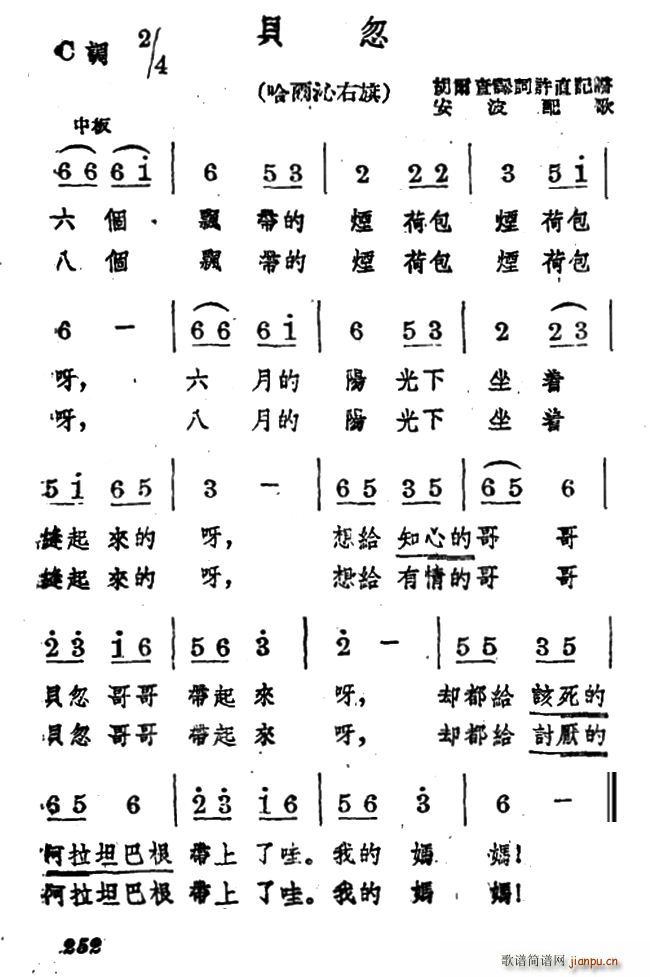 貝 忽
C調 2/4
(哈爾沁右旗)
胡爾查譯詞 許直記譜
安波配歌
中板
6 6 6 i | 6 5 3 | 2 2 2 | 3 5 i |
六個 飄帶的 煙荷包 煙荷包
八個 飄帶的 煙荷包 煙荷包
6 — | 6 6 6 i | 6 5 3 | 2 2 3 |
呀, 六月的 陽光下 坐着
呀, 八月的 陽光下 坐着
5 i 6 5 | 3 — | 6 5 3 5 | 6 5 6 |
縫起來的 呀, 想給知心的哥 哥
縫起來的 呀, 想給有情的哥 哥
2̇ 3̇ i 6 | 5 6 3̇ | 2̇ — | 5 5 3 5 |
貝忽哥哥 帶起來 呀, 却都給該死的
貝忽哥哥 帶起來 呀, 却都給討厭的
6 5 6 | 2̇ 3̇ i 6 | 5 6 3̇ | 6 — ‖
阿拉坦巴根 帶上了哇。我的 媽 媽!
阿拉坦巴根 帶上了哇。我的 媽 媽!
252
歌谱简谱网
jianpu.cn